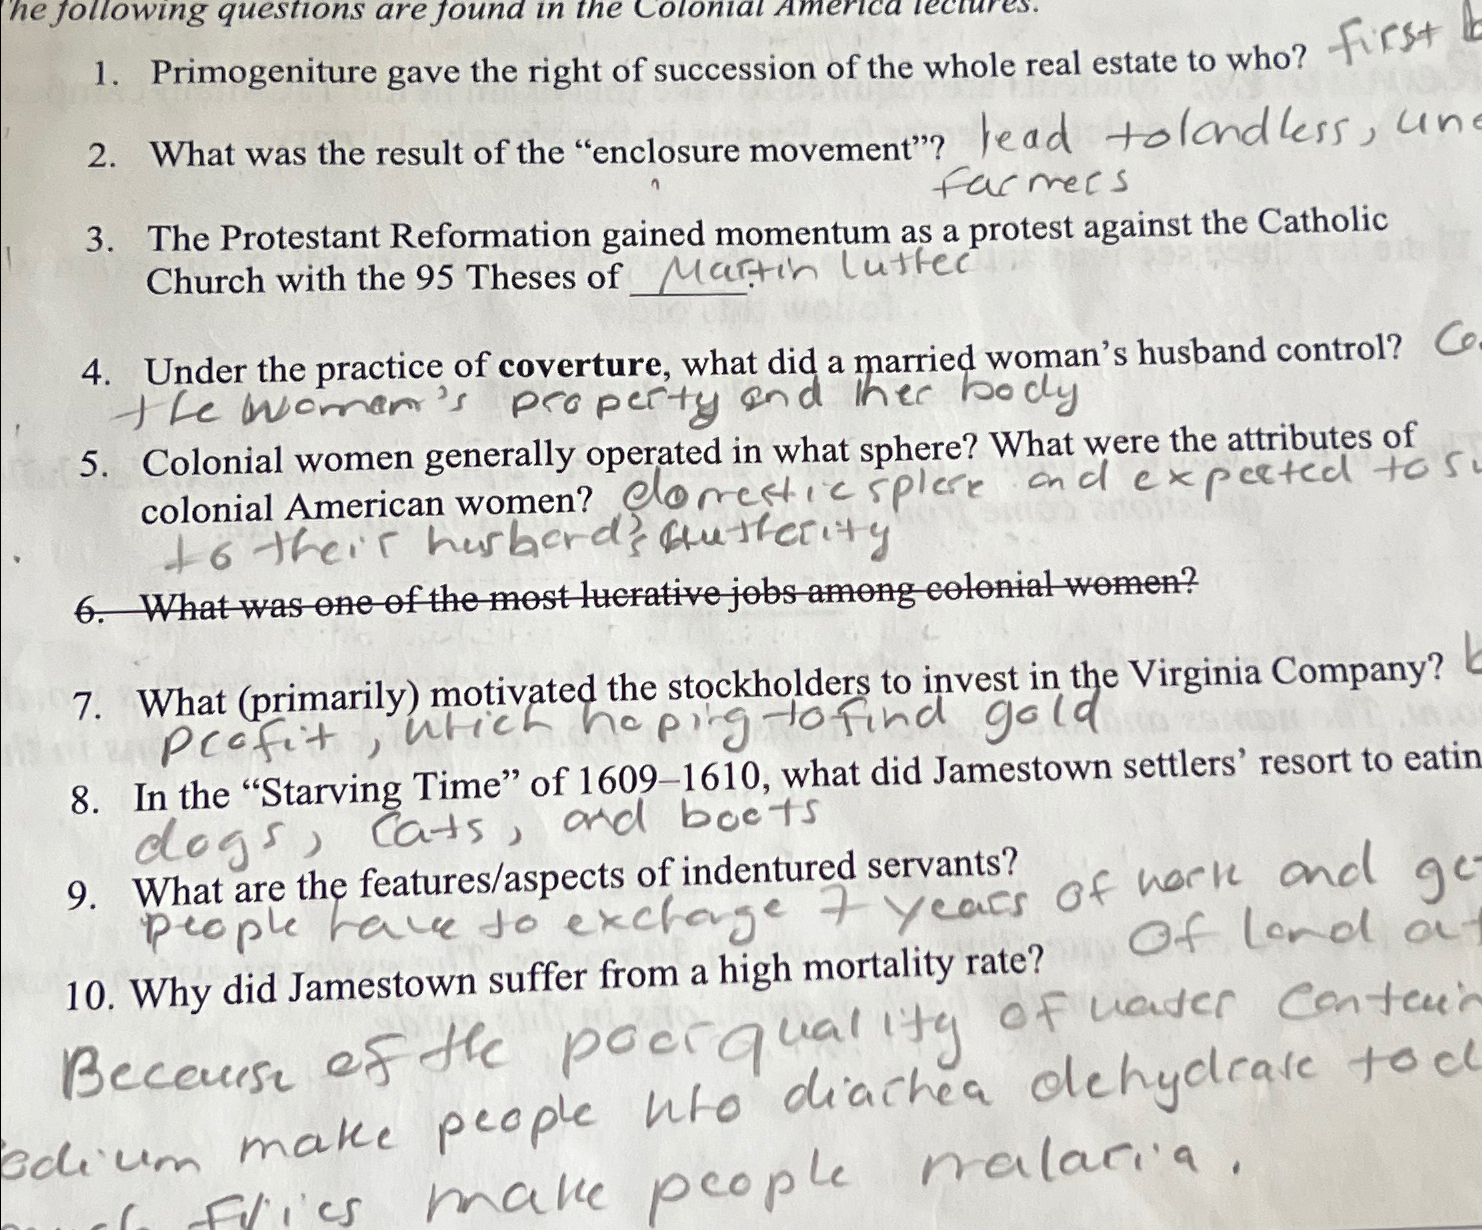 he following questions are found in the Colonial America lectures.
1. Primogeniture gave the right of succession of the whole real estate to who? first b
2. What was the result of the "enclosure movement"? lead to landless, une
farmers
3. The Protestant Reformation gained momentum as a protest against the Catholic
Church with the 95 Theses of ______. Martin luther
4. Under the practice of coverture, what did a married woman's husband control? Co
the women's property and her body
5. Colonial women generally operated in what sphere? What were the attributes of
colonial American women? domestic sphere and expected to su
to their husband's autherity
6. What was one of the most lucrative jobs among colonial women?
7. What (primarily) motivated the stockholders to invest in the Virginia Company? b
profit, which hoping to find gold
8. In the "Starving Time" of 1609–1610, what did Jamestown settlers' resort to eatin
dogs, cats, and boots
9. What are the features/aspects of indentured servants?
people have to exchange 7 years of work and ge
of land at
10. Why did Jamestown suffer from a high mortality rate?
Because of the poor quality of water contain
odium make people who diachea dehydrate to d
flies make people malaria.